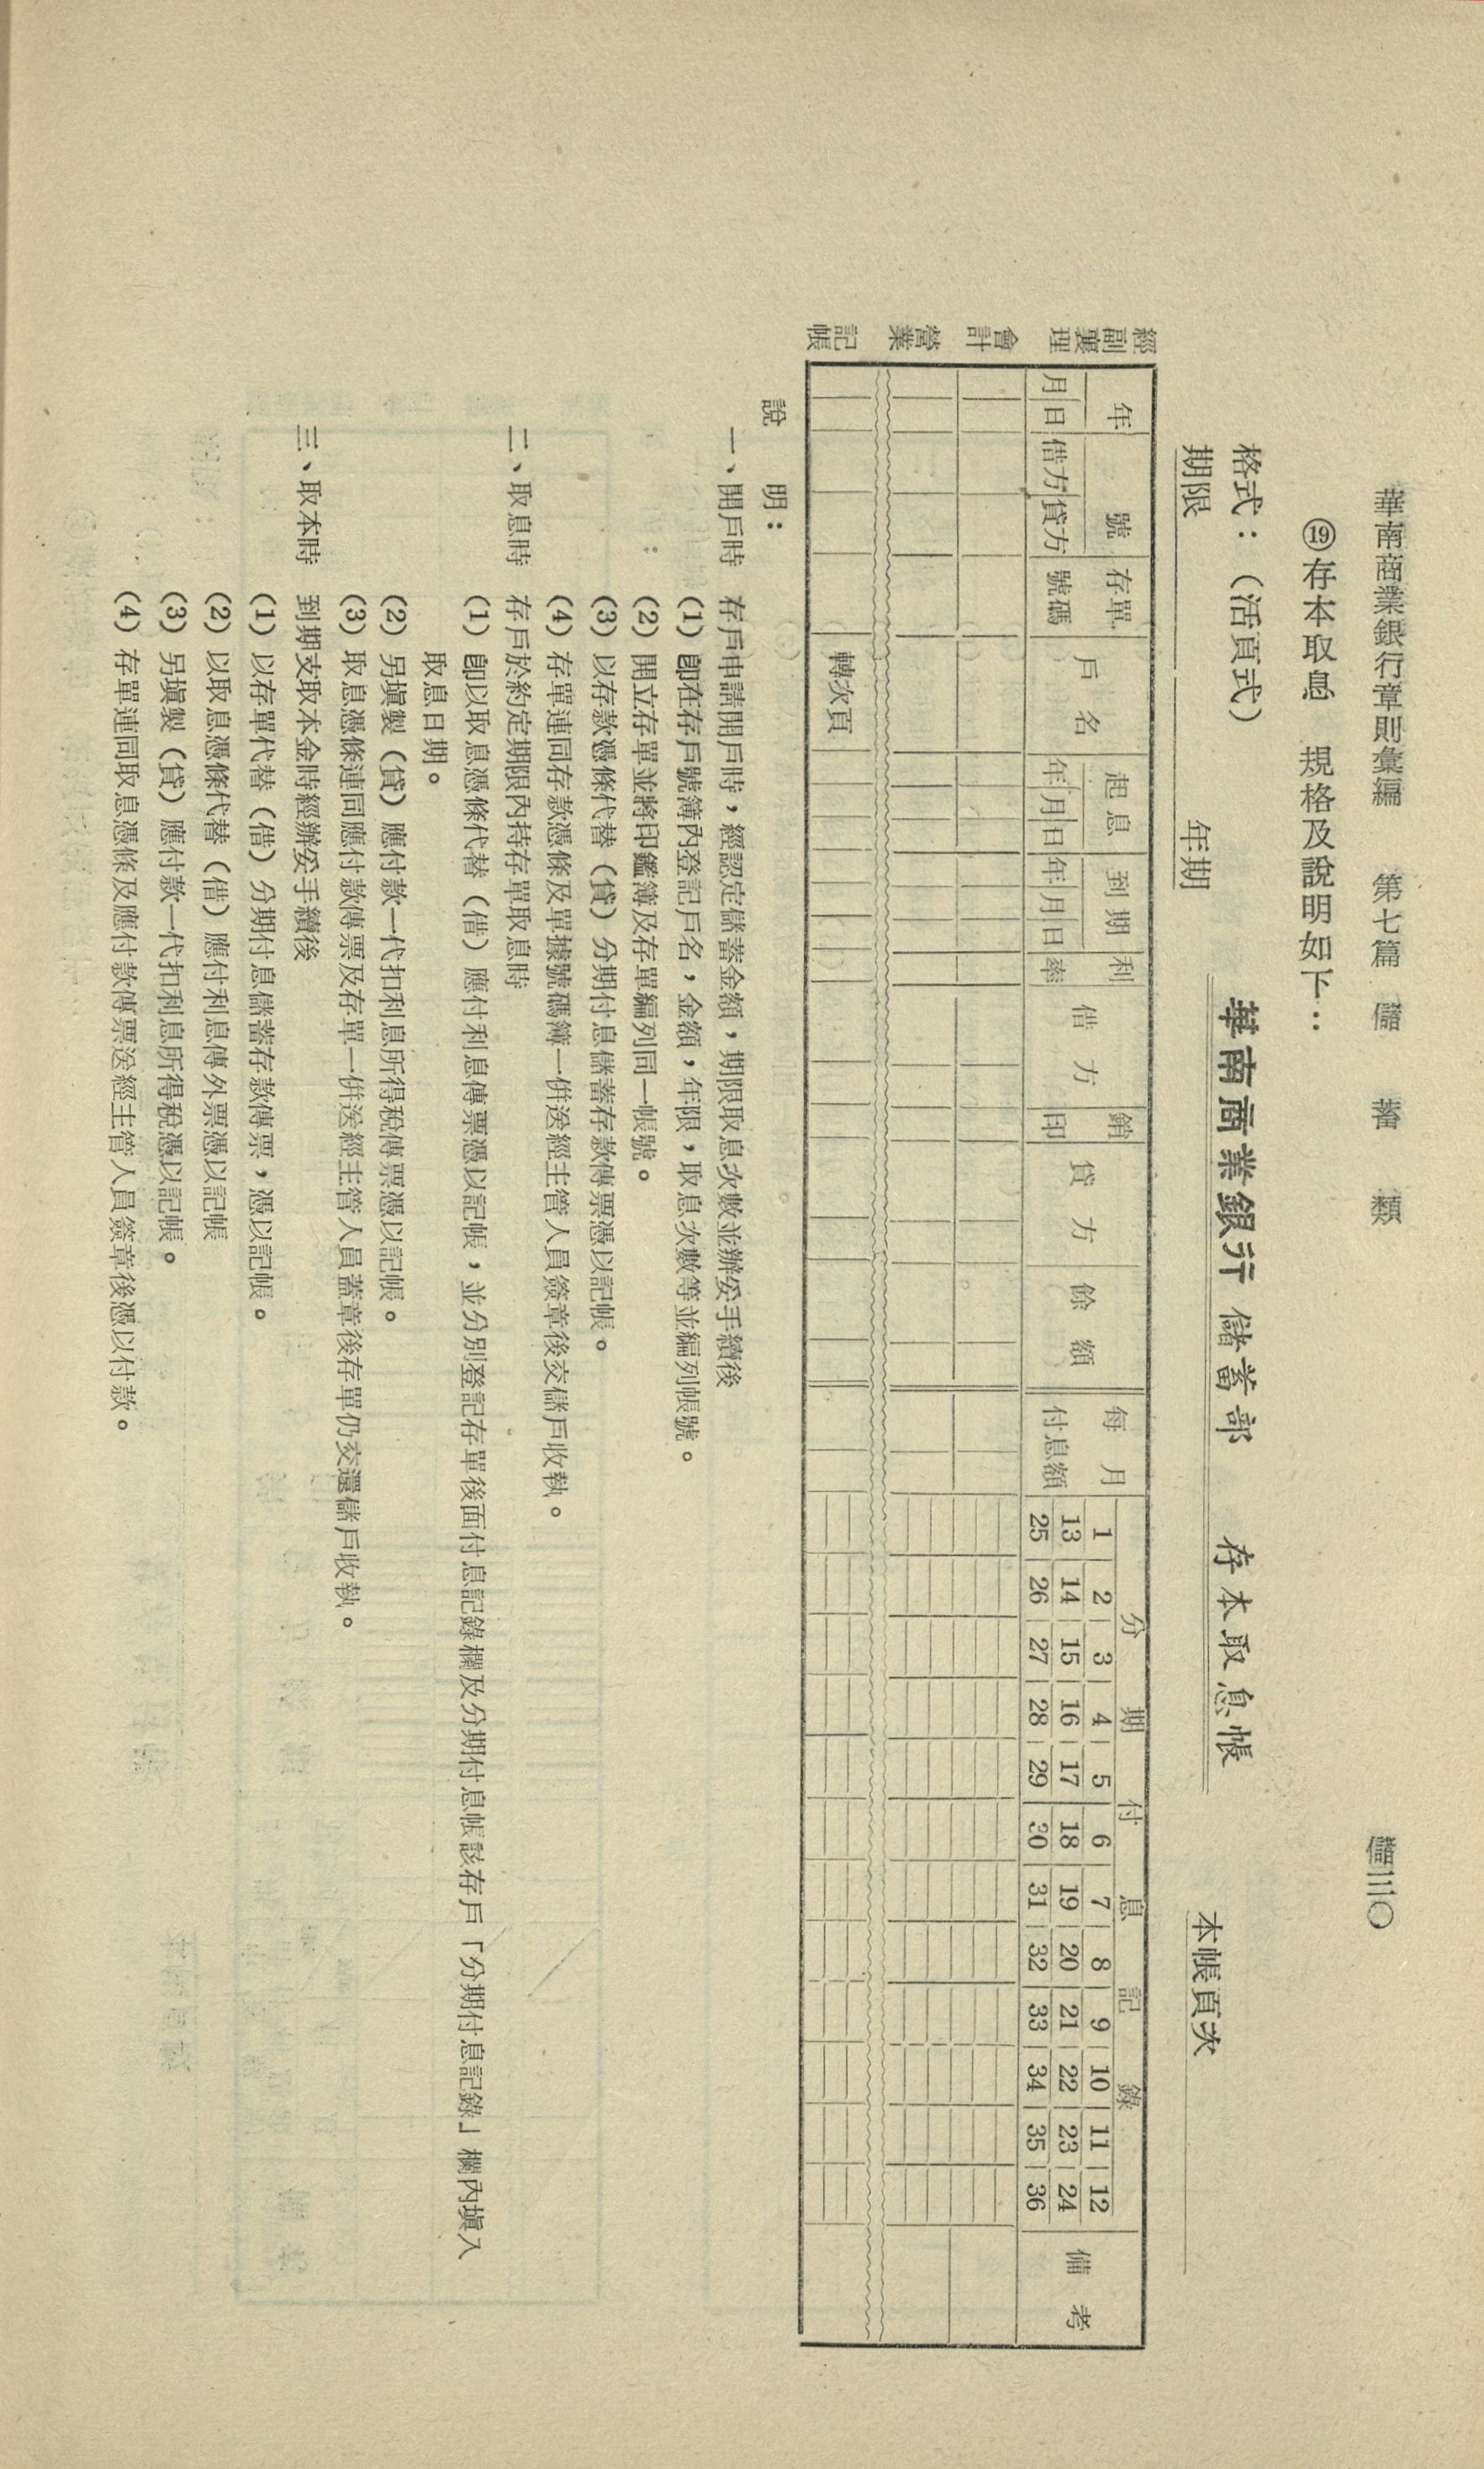 華南商業銀行章則彙編　第七篇　儲　蓄　類　儲三三〇
⑲存本取息　規格及說明如下：
格式：（活頁式）
華南商業銀行 儲蓄部　存本取息帳
期限　年期　本帳頁次
年　號　存單　起息　到期　利　銷　每月　分期付息記錄
月 日 借方 貸方 號碼 戶名 年 月 日 年 月 日 率 借方 印 貸方 餘額 付息額 備考
1 2 3 4 5 6 7 8 9 10 11 12
13 14 15 16 17 18 19 20 21 22 23 24
25 26 27 28 29 30 31 32 33 34 35 36
轉次頁
經副襄理　會計　營業　記帳
說　明：
一、開戶時　存戶申請開戶時，經認定儲蓄金額，期限取息次數並辦妥手續後
(1) 卽在存戶號簿內登記戶名，金額，年限，取息次數等並編列帳號。
(2) 開立存單並將印鑑簿及存單編列同一帳號。
(3) 以存款憑條代替（貸）分期付息儲蓄存款傳票憑以記帳。
(4) 存單連同存款憑條及單據號碼簿一併送經主管人員簽章後交儲戶收執。
二、取息時　存戶於約定期限內持存單取息時
(1) 卽以取息憑條代替（借）應付利息傳票憑以記帳，並分別登記存單後面付息記錄欄及分期付息帳該存戶「分期付息記錄」欄內塡入
取息日期。
(2) 另塡製（貸）應付款一代扣利息所得稅傳票憑以記帳。
(3) 取息憑條連同應付款傳票及存單一併送經主管人員蓋章後存單仍交還儲戶收執。
三、取本時　到期支取本金時經辦妥手續後
(1) 以存單代替（借）分期付息儲蓄存款傳票，憑以記帳。
(2) 以取息憑條代替（借）應付利息傳外票憑以記帳
(3) 另塡製（貸）應付款一代扣利息所得稅憑以記帳。
(4) 存單連同取息憑條及應付款傳票送經主管人員簽章後憑以付款。